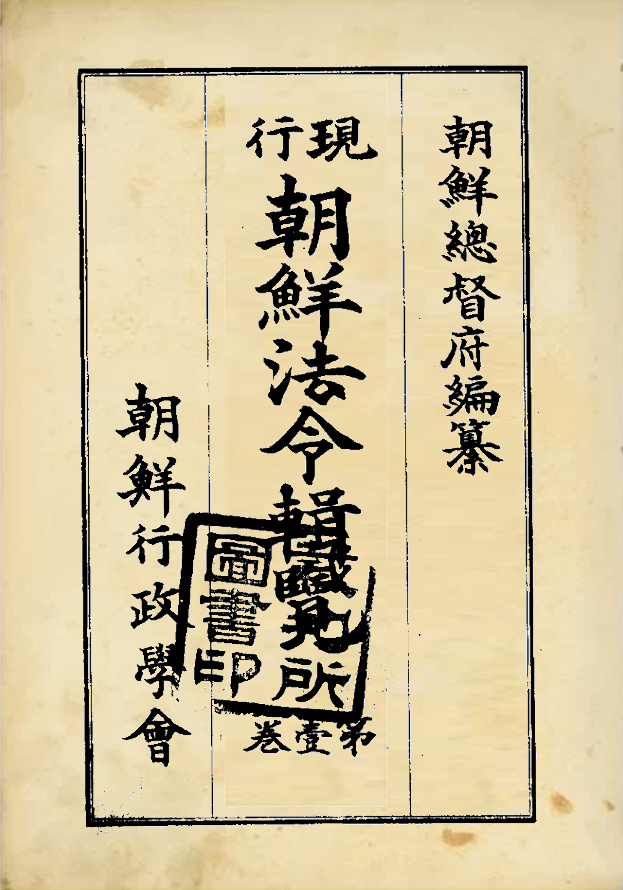 朝鮮總督府編纂
現行
朝鮮法令輯覽
第壹卷
朝鮮行政學會
所
圖書印